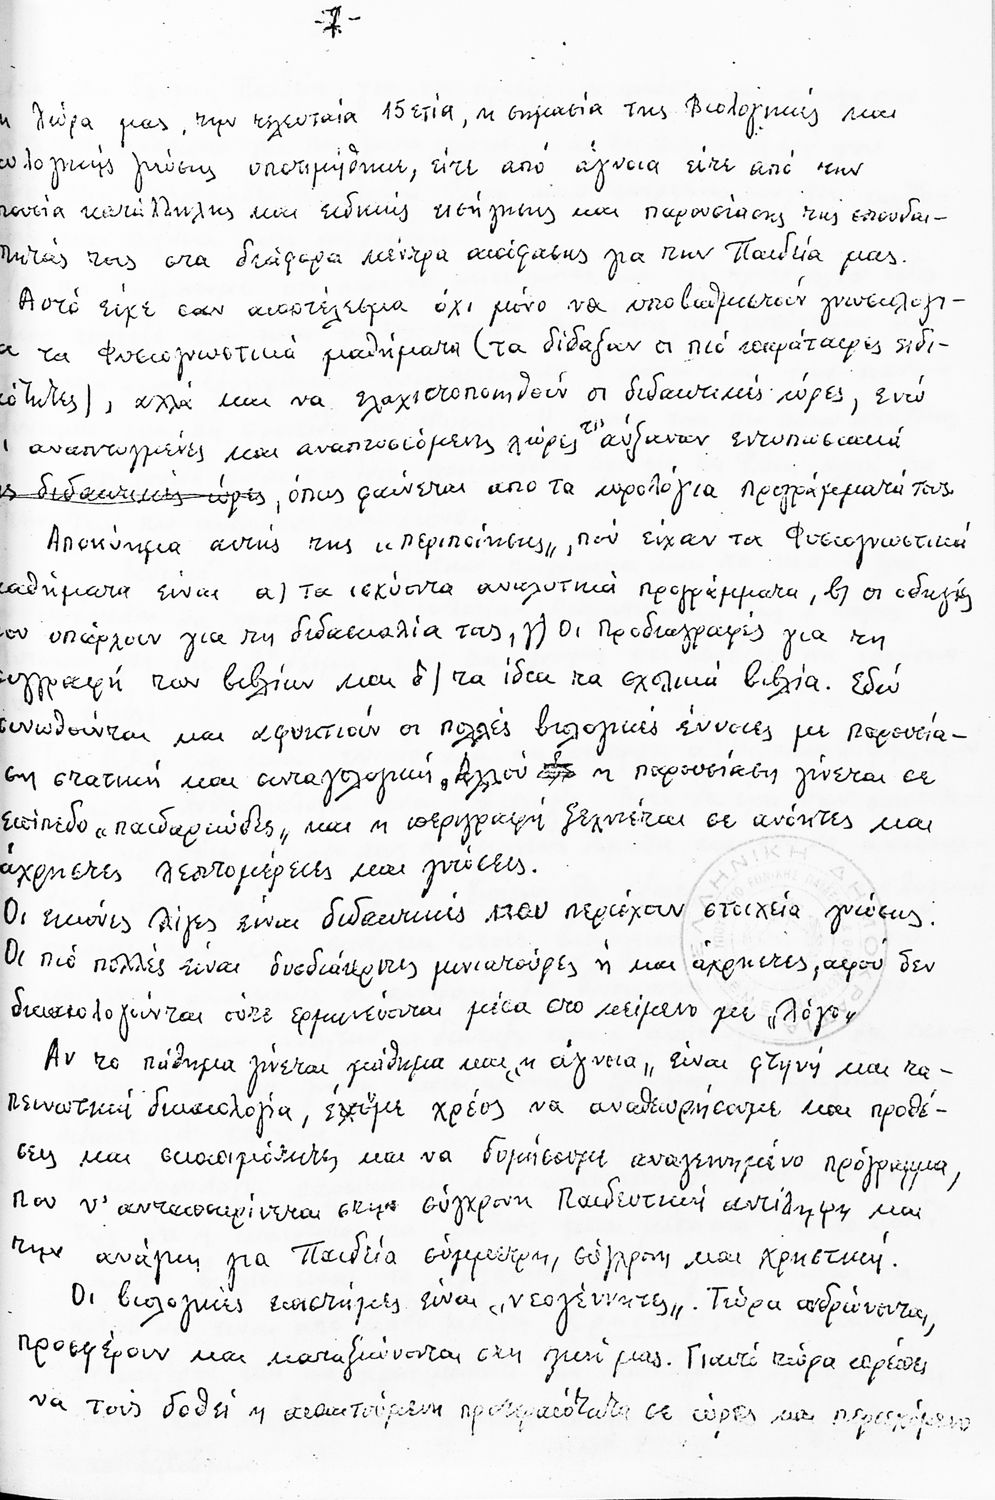 -7-
η χώρα μας, την τελευταία 15ετία, η σημασία της Βιολογικής και
ολογικής γνώσης υποτιμήθηκε, είτε από άγνοια είτε από την
πουσία κατάλληλης και ειδικής εισήγησης και παρουσίασης της σπουδαι-
ότητάς τους στα διάφορα κέντρα απόφασης για την Παιδεία μας.
Αυτό είχε σαν αποτέλεσμα όχι μόνο να υποβαθμιστούν γνωσιολογι-
α τα Φυσιογνωστικά μαθήματα (τα δίδαξαν οι πιό ετερόταιρες ειδι-
κότητες), αλλά και να ελαχιστοποιηθούν οι διδακτικές ώρες, ενώ
ι αναπτυγμένες και αναπτυσσόμενες χώρες τις αύξαναν εντυπωσιακά
ς διδακτικές ώρες, όπως φαίνεται απο τα ωρολόγια προγράμματά τους.
Αποκύημα αυτής της „περιποίησης„, πού είχαν τα Φυσιογνωστικά
μαθήματα είναι α) τα ισχύοντα αναλυτικά προγράμματα, β) οι οδηγίες
που υπάρχουν για τη διδασκαλία τους, γ) Οι Προδιαγραφές για τη
συγγραφή των βιβλίων και δ) τα ίδια τα σχολικά βιβλία. Εδώ
συνωθούνται και ασφυκτιούν οι πολλές βιολογικές έννοιες με παρουσία-
ση στατική και συνταγολογική. Αλλού η παρουσίαση γίνεται σε
επίπεδο „παιδαριώδες„ και η περιγραφή ξεχνιέται σε ανόητες και
άχρηστες λεπτομέρειες και γνώσεις.
Οι εικόνες λίγες είναι διδακτικές που περιέχουν στοιχεία γνώσης.
Οι πιό πολλές είναι δυσδιάκριτες μινιατούρες ή και άχρηστες, αφού δεν
δικαιολογούνται ούτε ερμηνεύονται μέσα στο κείμενο με „λόγο„
Αν το πάθημα γίνεται μάθημα και „η άγνοια„ είναι φτηνή και τα-
πεινωτική δικαιολογία, έχουμε χρέος να αναθεωρήσουμε και προθέ-
σεις και σκοπιμότητες και να δομήσουμε αναγεννημένο πρόγραμμα,
που ν' ανταποκρίνεται στην σύγχρονη Παιδευτική αντίληψη και
την ανάγκη για Παιδεία σύμμετρη, σύγχρονη και χρηστική.
Οι βιολογικές επιστήμες είναι „νεογέννητες„. Τώρα ανδρώνονται,
προσφέρουν και καταξιώνονται στη ζωή μας. Γιαυτό τώρα πρέπει
να τους δοθεί η απαιτούμενη προτεραιότητα σε ώρες και περιεχόμενο